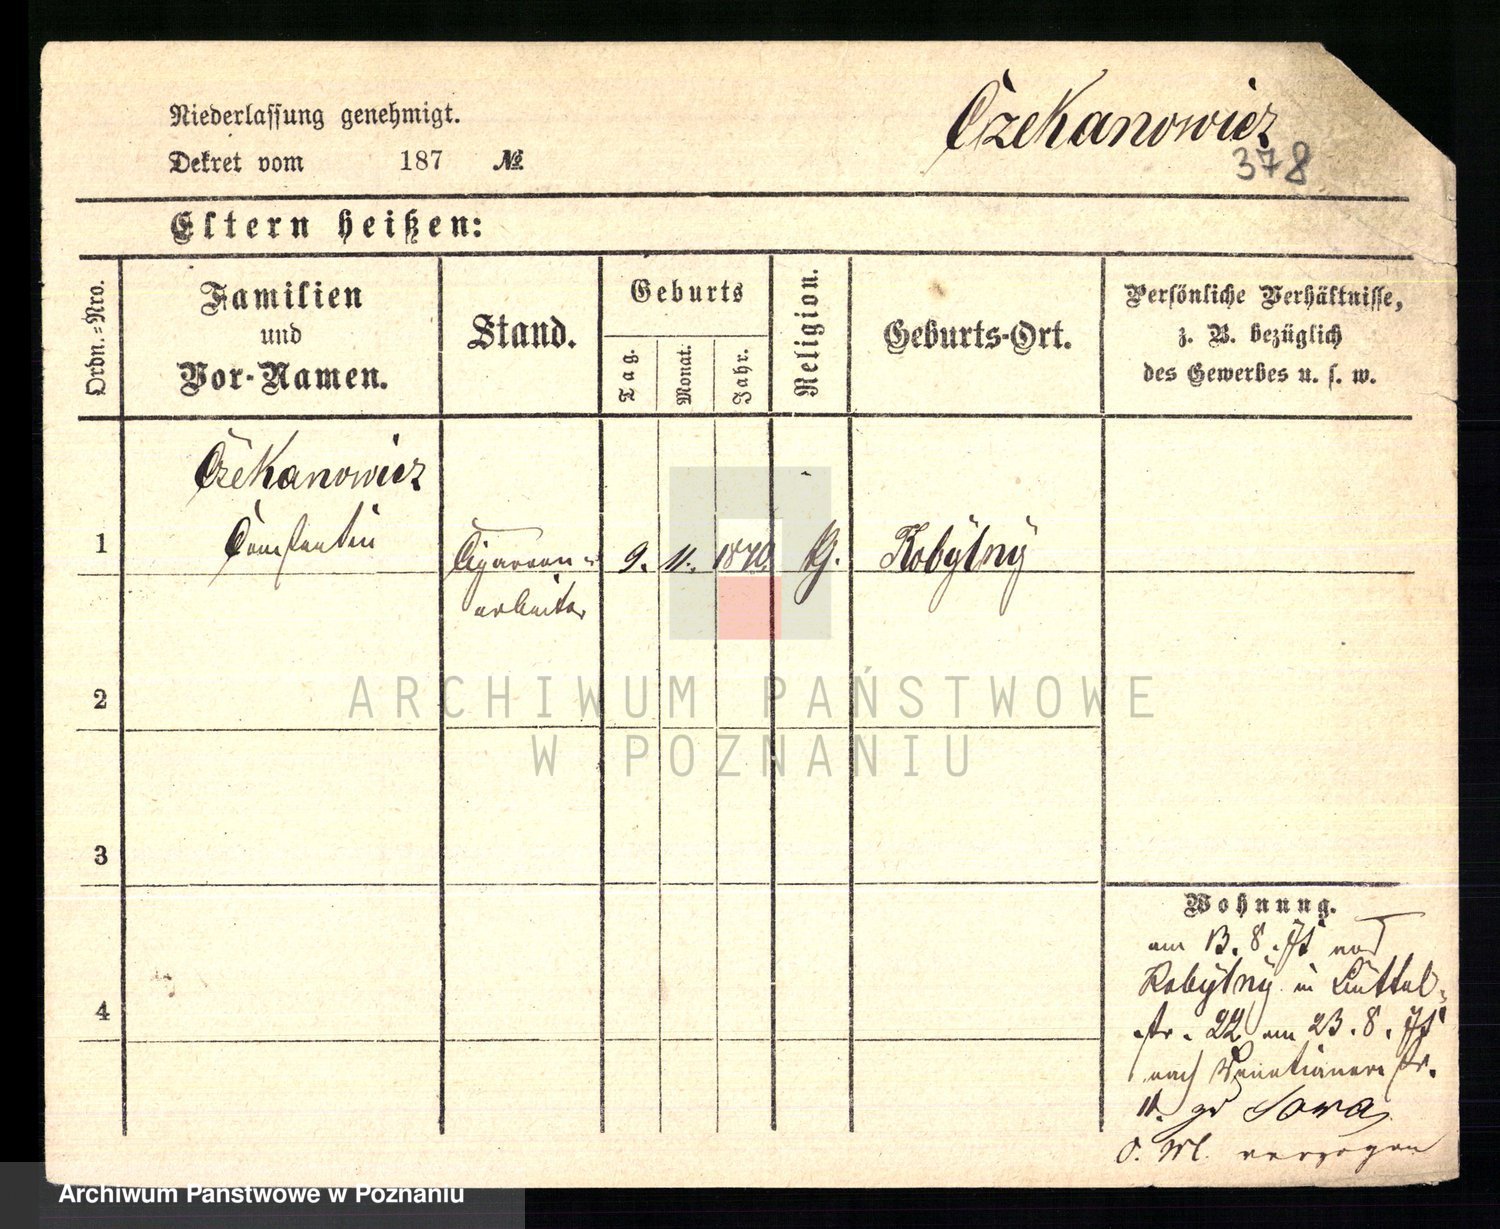 Niederlassung genehmigt.
Czekanowicz
Dekret vom 187 №
378
Eltern heißen:
Ordn.=Nro.
Familien
und
Vor-Namen.
Stand.
Geburts
Tag.
Monat.
Jahr.
Religion.
Geburts-Ort.
Persönliche Verhältnisse,
z. B. bezüglich
des Gewerbes u. s. w.
Czekanowicz
1 Constantin Cigarren- 9. 11. 1870. Kobylny
arbeiter
2
3
4
Wohnung.
am 13. 8.
Kobylny in Büttel-
str. 22 am 23. 8.
nach Venetianerstr.
11. zu Sowa
verzogen
ARCHIWUM PAŃSTWOWE
W POZNANIU
Archiwum Państwowe w Poznaniu